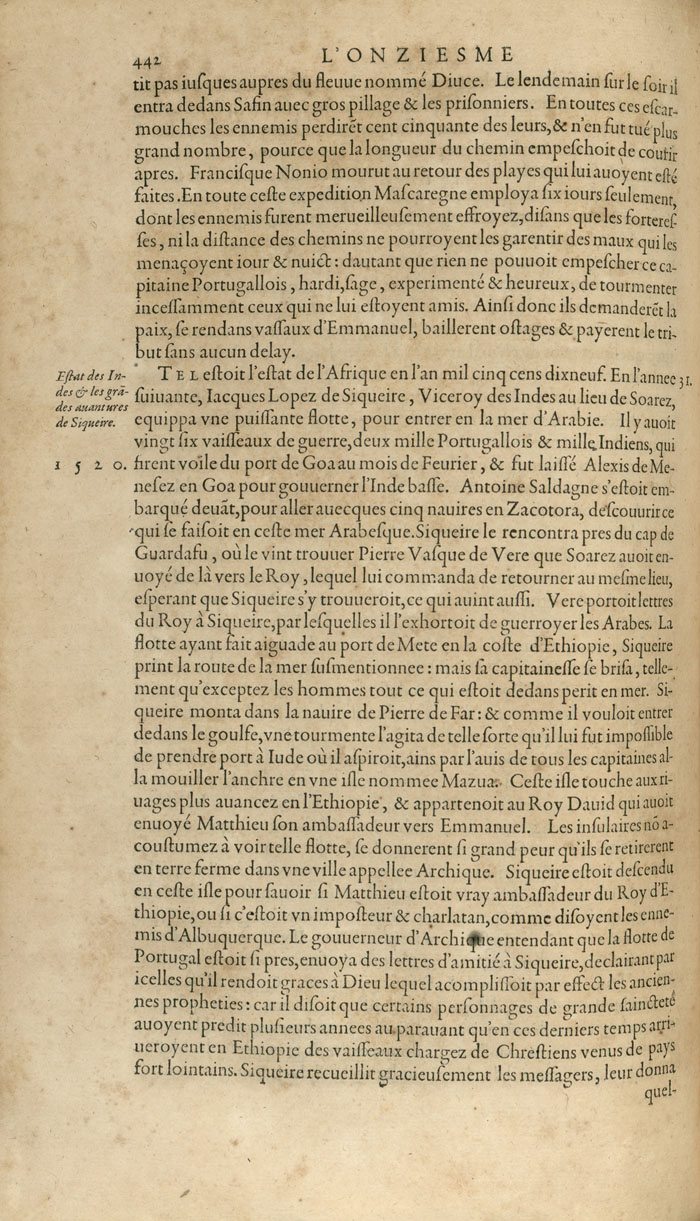 442 L'ONZIESME
tit pas iuſques aupres du fleuue nommé Diuce. Le lendemain ſur le ſoir il
entra dedans Safin auec gros pillage & les priſonniers. En toutes ces eſcar-
mouches les ennemis perdirẽt cent cinquante des leurs, & n'en fut tué plus
grand nombre, pource que la longueur du chemin empeſchoit de courir
apres. Franciſque Nonio mourut au retour des playes qui lui auoyent eſté
faites. En toute ceſte expedition Maſcaregne employa ſix iours ſeulement,
dont les ennemis furent merueilleuſement effroyez, diſans que les fortereſ-
ſes, ni la diſtance des chemins ne pourroyent les garentir des maux qui les
menaçoyent iour & nuict: dautant que rien ne pouuoit empeſcher ce ca-
pitaine Portugallois, hardi, ſage, experimenté & heureux, de tourmenter
inceſſamment ceux qui ne lui eſtoyent amis. Ainſi donc ils demanderẽt la
paix, ſe rendans vaſſaux d'Emmanuel, baillerent oſtages & payerent le tri-
but ſans aucun delay.
Eſtat des In-
des & les grã-
des auantures
de Siqueire.
TEL eſtoit l'eſtat de l'Afrique en l'an mil cinq cens dixneuf. En l'annee 31.
ſuiuante, Iacques Lopez de Siqueire, Viceroy des Indes au lieu de Soarez,
equippa vne puiſſante flotte, pour entrer en la mer d'Arabie. Il y auoit
vingt ſix vaiſſeaux de guerre, deux mille Portugallois & mille Indiens, qui
1520.
firent voile du port de Goa au mois de Feurier, & fut laiſſé Alexis de Me-
neſez en Goa pour gouuerner l'Inde baſſe. Antoine Saldagne s'eſtoit em-
barqué deuãt, pour aller auecques cinq nauires en Zacotora, deſcouurir ce
qui ſe faiſoit en ceſte mer Arabeſque. Siqueire le rencontra pres du cap de
Guardafu, où le vint trouuer Pierre Vaſque de Vere que Soarez auoit en-
uoyé de là vers le Roy, lequel lui commanda de retourner au meſme lieu,
eſperant que Siqueire s'y trouueroit, ce qui auint auſſi. Vere portoit lettres
du Roy à Siqueire, par leſquelles il l'exhortoit de guerroyer les Arabes. La
flotte ayant fait aiguade au port de Mete en la coſte d'Ethiopie, Siqueire
print la route de la mer ſuſmentionnee: mais ſa capitaineſſe ſe briſa, telle-
ment qu'exceptez les hommes tout ce qui eſtoit dedans perit en mer. Si-
queire monta dans la nauire de Pierre de Far: & comme il vouloit entrer
dedans le goulfe, vne tourmente l'agita de telle ſorte qu'il lui fut impoſſible
de prendre port à Iude où il aſpiroit, ains par l'auis de tous les capitaines al-
la mouiller l'anchre en vne iſle nommee Mazua. Ceſte iſle touche aux ri-
uages plus auancez en l'Ethiopie, & appartenoit au Roy Dauid qui auoit
enuoyé Matthieu ſon ambaſſadeur vers Emmanuel. Les inſulaires nõ a-
couſtumez à voir telle flotte, ſe donnerent ſi grand peur qu'ils ſe retirerent
en terre ferme dans vne ville appellee Archique. Siqueire eſtoit deſcendu
en ceſte iſle pour ſauoir ſi Matthieu eſtoit vray ambaſſadeur du Roy d'E-
thiopie, ou ſi c'eſtoit vn impoſteur & charlatan, comme diſoyent les enne-
mis d'Albuquerque. Le gouuerneur d'Archique entendant que la flotte de
Portugal eſtoit ſi pres, enuoya des lettres d'amitié à Siqueire, declairant par
icelles qu'il rendoit graces à Dieu lequel acompliſſoit par effect les ancien-
nes propheties: car il diſoit que certains perſonnages de grande ſaincteté
auoyent predit pluſieurs annees auparauant qu'en ces derniers temps arri-
ueroyent en Ethiopie des vaiſſeaux chargez de Chreſtiens venus de pays
fort lointains. Siqueire recueillit gracieuſement les meſſagers, leur donna
quel-